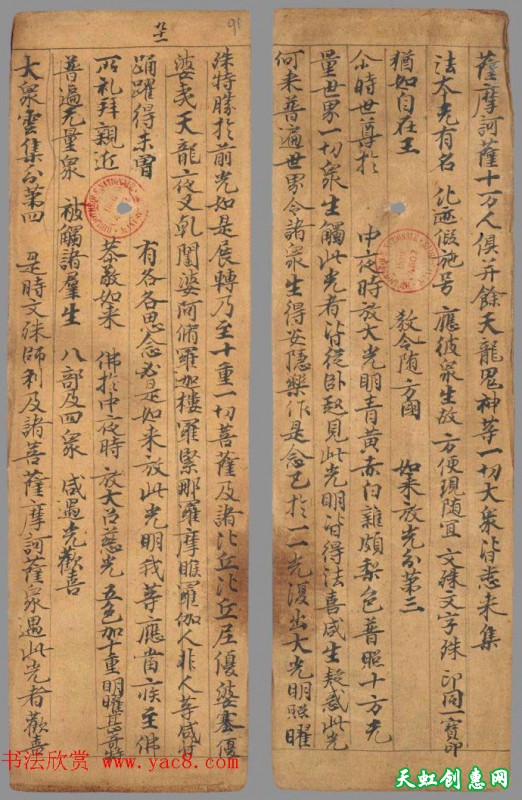 薩摩訶薩十万人俱并餘天龍鬼神等一切大衆皆悉来集
法本先有名 化迹假施号 應彼衆生故 方便現随冝 文殊文字殊 印同一寳印
猶如自在王 敎令随方國 如来放光分第三
尒時世尊於 中夜時放大光明青黄赤白雜頗梨色普照十方无
量世界一切衆生觸此光者皆從卧起見此光明皆得法喜咸生疑惑此光
何来普遍世界令諸衆生得安隱樂作是念已於一一光復出大光明照曜
91
殊特勝於前光如是展轉乃至十重一切菩薩及諸比丘比丘尼優婆塞優
婆夷天龍夜叉乹闥婆阿脩羅加樓羅緊那羅摩睺羅伽人非人等咸共
踊躍得未曽 有各各思念必是如来放此光明我等應當疾至佛
所礼拜親近 恭敬如来 佛於中夜時 放大慈光 五色加十重 明曜甚奇特
普遍无量衆 被觸諸羣生 八部及四衆 咸遇光歡喜
大衆雲集分第四 是時文殊師利及諸菩薩摩訶薩衆遇此光者歡喜
书法欣赏 www.yac8.com
天虹创惠网